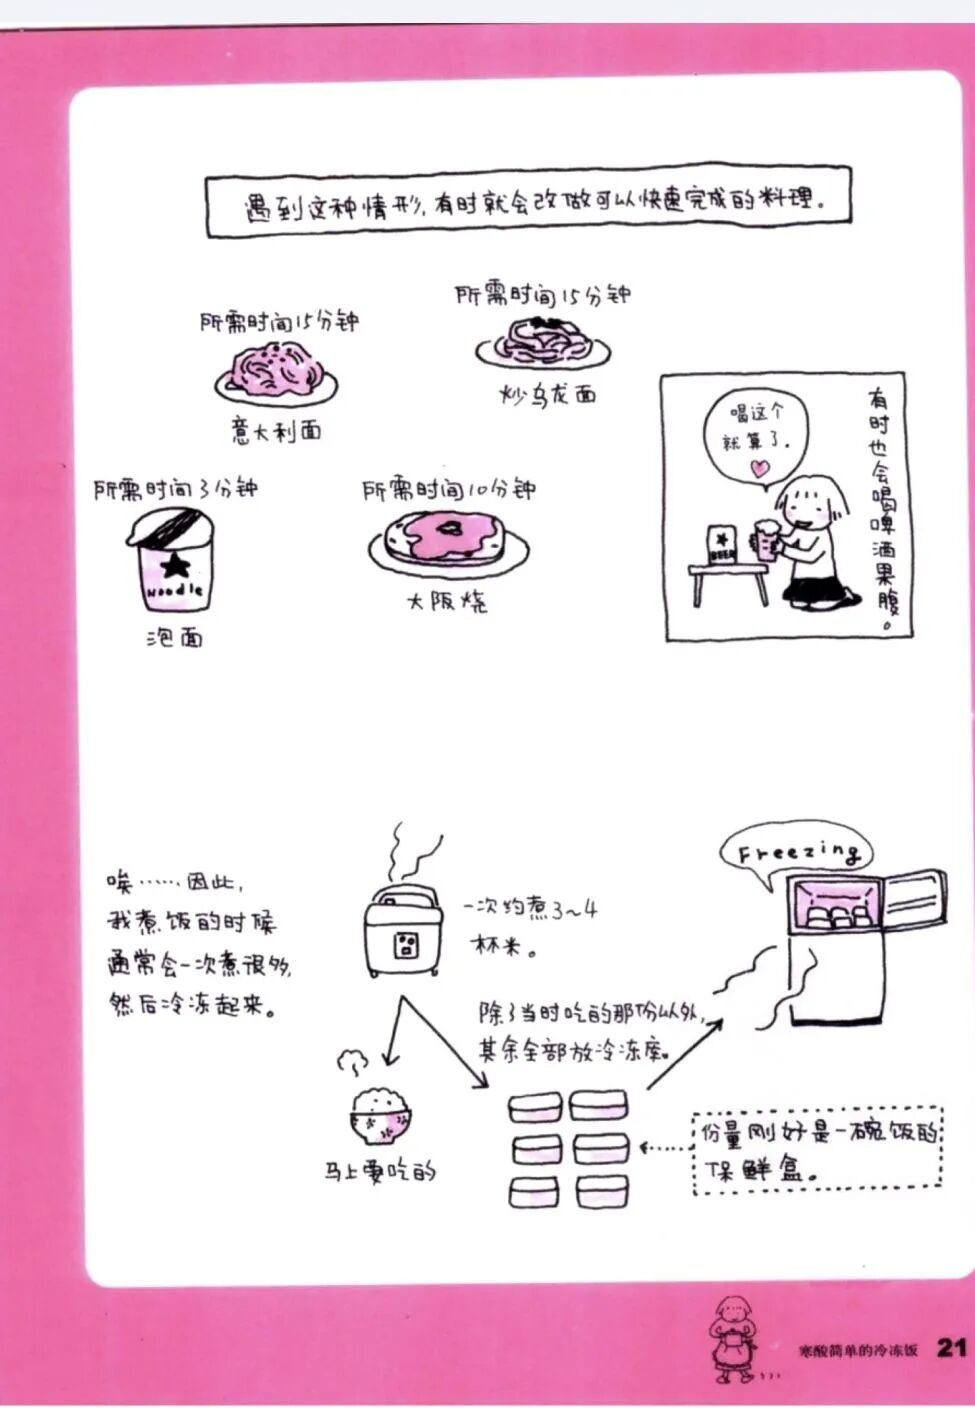 遇到这种情形,有时就会改做可以快速完成的料理。
所需时间15分钟
意大利面
所需时间15分钟
炒乌龙面
所需时间3分钟
Noodle
泡面
所需时间10分钟
大阪烧
有时也会喝啤酒果腹。
喝这个
就算了。
BEER
唉……因此,
我煮饭的时候
通常会一次煮很多,
然后冷冻起来。
一次约煮3~4
杯米。
Freezing
除了当时吃的那份以外,
其余全部放冷冻库。
马上要吃的
份量刚好是一碗饭的
保鲜盒。
寒酸简单的冷冻饭 21